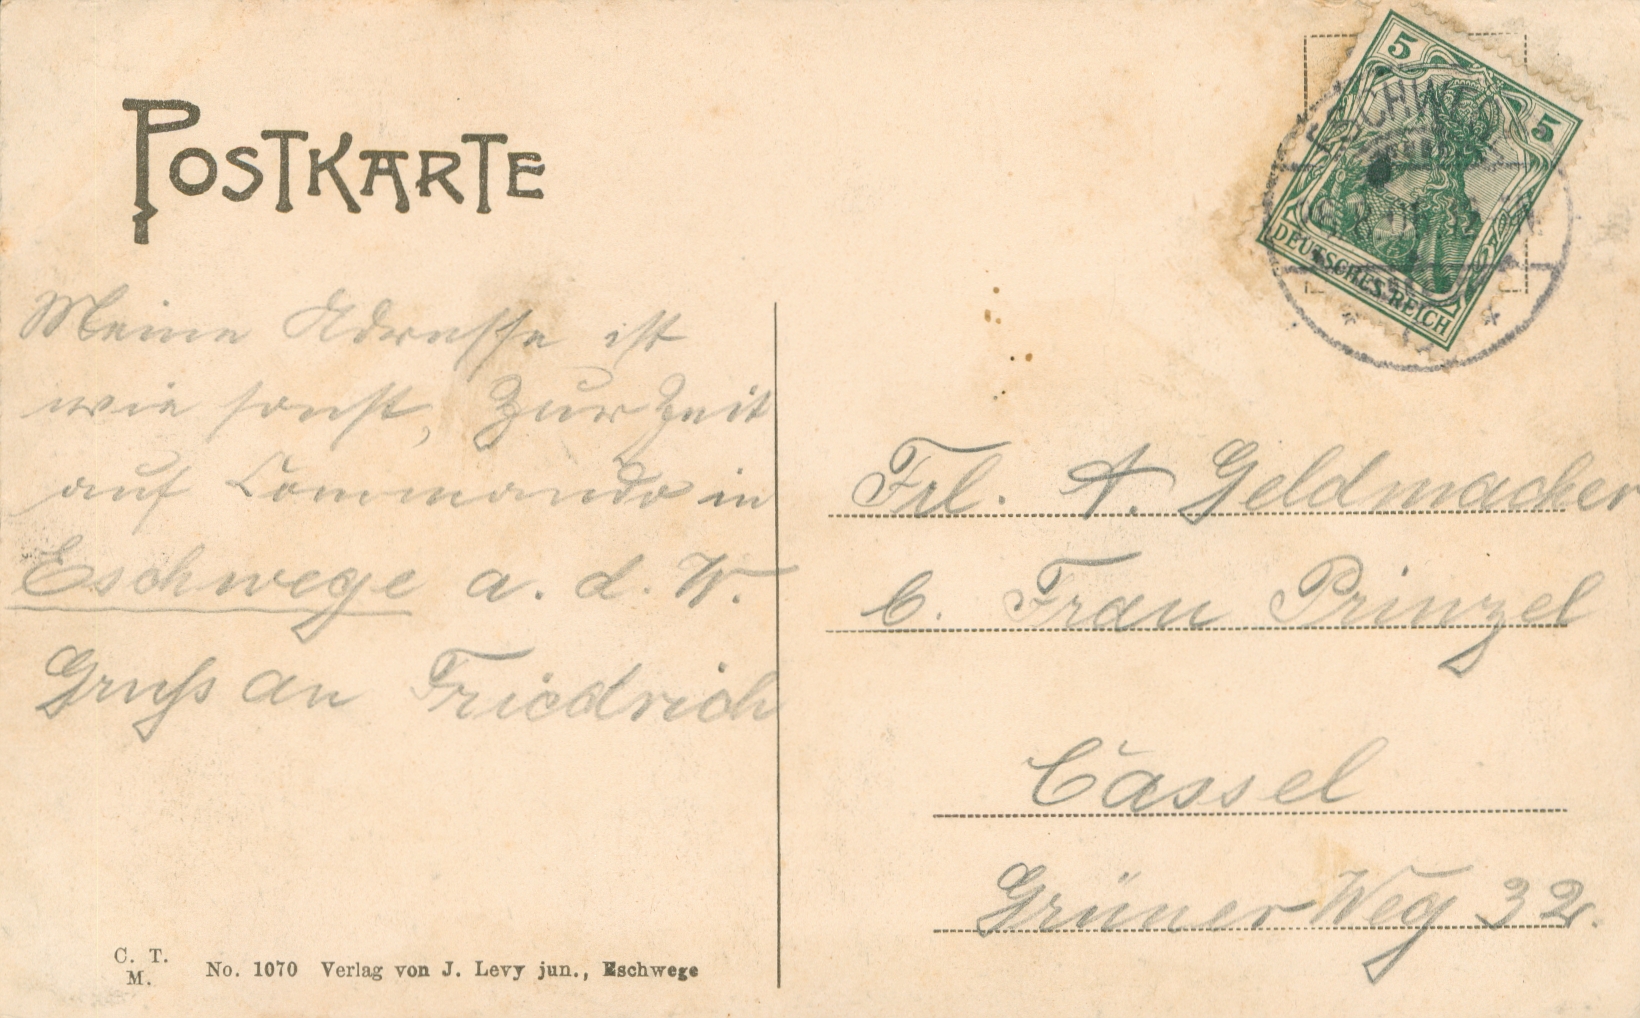 POSTKARTE
5
5
DEUTSCHES REICH
Meine Adresse ist
wie sonst, Zur Zeit
auf Commando in
Eschwege a. d. W.
Gruß an Friedrich
Frl. A. Geldmacher
b. Frau Prinzel
Cassel
Grüner Weg 32.
C. T.
M.
No. 1070 Verlag von J. Levy jun., Eschwege